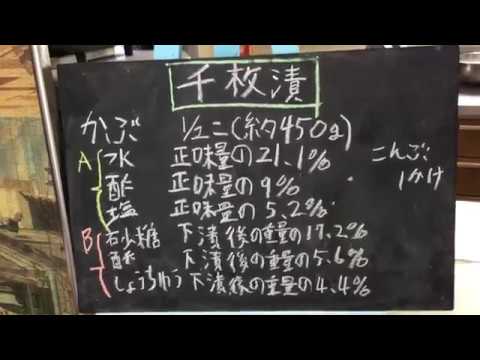 千枚漬
かぶ 1/2コ(約450g)
A 水 正味量の21.1%
酢 正味量の9%
塩 正味量の5.2%
こんぶ
1かけ
B 砂糖 下漬後の重量の17.2%
酢 下漬後の重量の5.6%
しょうちゅう 下漬後の重量の4.4%